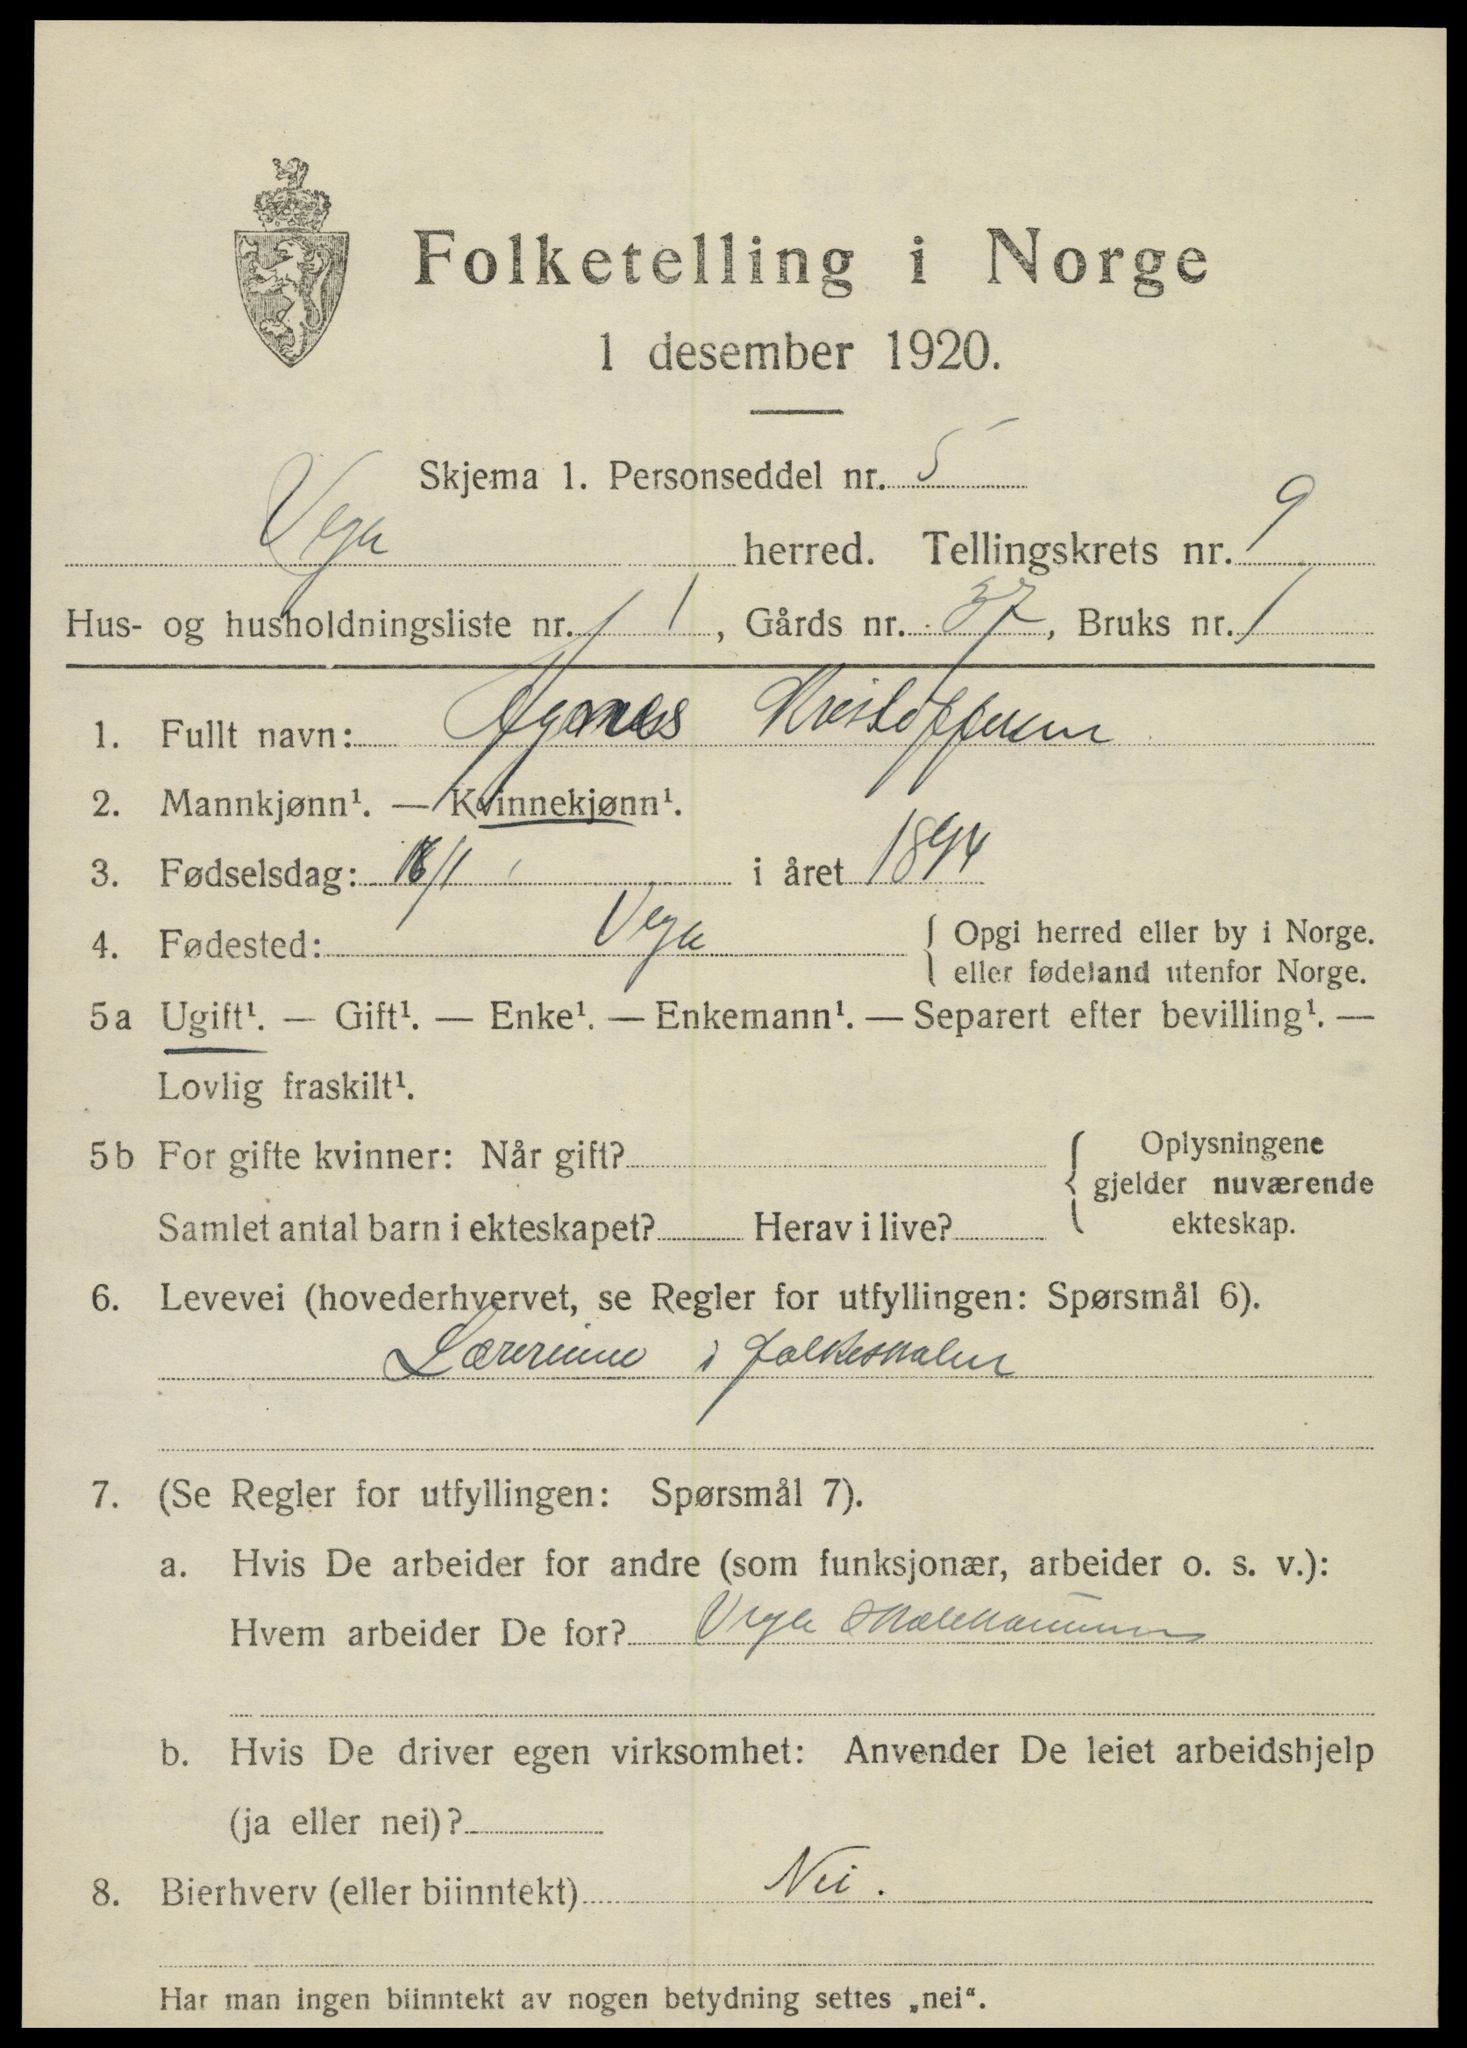 Folketelling i Norge
1 desember 1920.
Skjema 1. Personseddel nr. 5
Vega herred. Tellingskrets nr. 9
Hus- og husholdningsliste nr. 1, Gårds nr. 37, Bruks nr. 1
1. Fullt navn: Agnes Kristoffersen
2. Mannkjønn¹. — Kvinnekjønn¹.
3. Fødselsdag: /1 i året 1894
4. Fødested: Vega { Opgi herred eller by i Norge.
eller fødeland utenfor Norge.
5a Ugift¹. — Gift¹. — Enke¹. — Enkemann¹. — Separert efter bevilling¹. —
Lovlig fraskilt¹.
5b For gifte kvinner: Når gift? { Oplysningene
gjelder nuværende
Samlet antal barn i ekteskapet? Herav i live? ekteskap.
6. Levevei (hovederhvervet, se Regler for utfyllingen: Spørsmål 6).
Lærerinne i folkeskolen
7. (Se Regler for utfyllingen: Spørsmål 7).
a. Hvis De arbeider for andre (som funksjonær, arbeider o. s. v.):
Hvem arbeider De for? Vega skolekommune
b. Hvis De driver egen virksomhet: Anvender De leiet arbeidshjelp
(ja eller nei)?
8. Bierhverv (eller biinntekt) Nei.
Har man ingen biinntekt av nogen betydning settes „nei“.